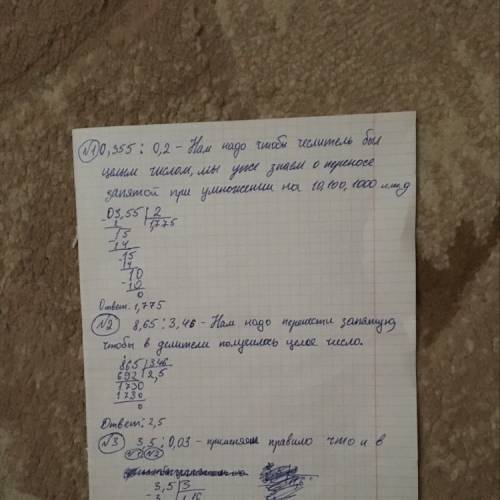 №1 0,355 : 0,2 - Нам надо чтобы числитель был
целым числом, мы уже знаем о переносе
запятой при умножении на 10,100,1000 и т.д
-03,55 | 2
2 1,775
-15
14
-15
14
-10
10
0
Ответ: 1,775
№2 8,65 : 3,46 - Нам надо перенести запятую,
чтобы в делители получилось целое число.
865 | 346
692 2,5
1730
1730
0
Ответ: 2,5
№3 3,5 : 0,03 - применяем правило что и в
№1 №2
3,5 | 3
-3